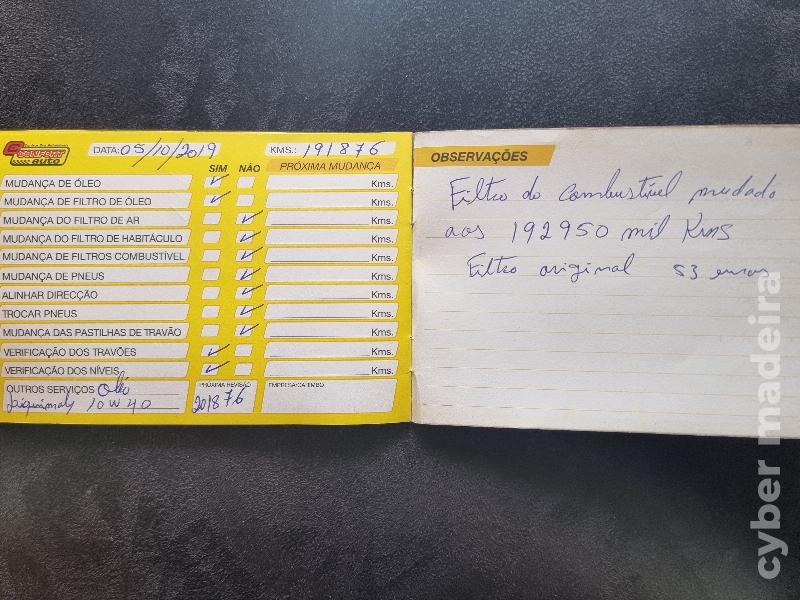 auto
DATA: 05/10/2019
KMS.: 191876
SIM NÃO
PRÓXIMA MUDANÇA
MUDANÇA DE ÓLEO Kms.
MUDANÇA DE FILTRO DE ÓLEO Kms.
MUDANÇA DO FILTRO DE AR Kms.
MUDANÇA DO FILTRO DE HABITÁCULO Kms.
MUDANÇA DE FILTROS COMBUSTÍVEL Kms.
MUDANÇA DE PNEUS Kms.
ALINHAR DIRECÇÃO Kms.
TROCAR PNEUS Kms.
MUDANÇA DAS PASTILHAS DE TRAVÃO Kms.
VERIFICAÇÃO DOS TRAVÕES Kms.
VERIFICAÇÃO DOS NÍVEIS Kms.
OUTROS SERVIÇOS Oleo
10W40
PRÓXIMA REVISÃO
201876
EMPRESA/CARIMBO
OBSERVAÇÕES
Filtro do combustível mudado
aos 192950 mil Kms
Filtro original 53 euros
cyber madeira